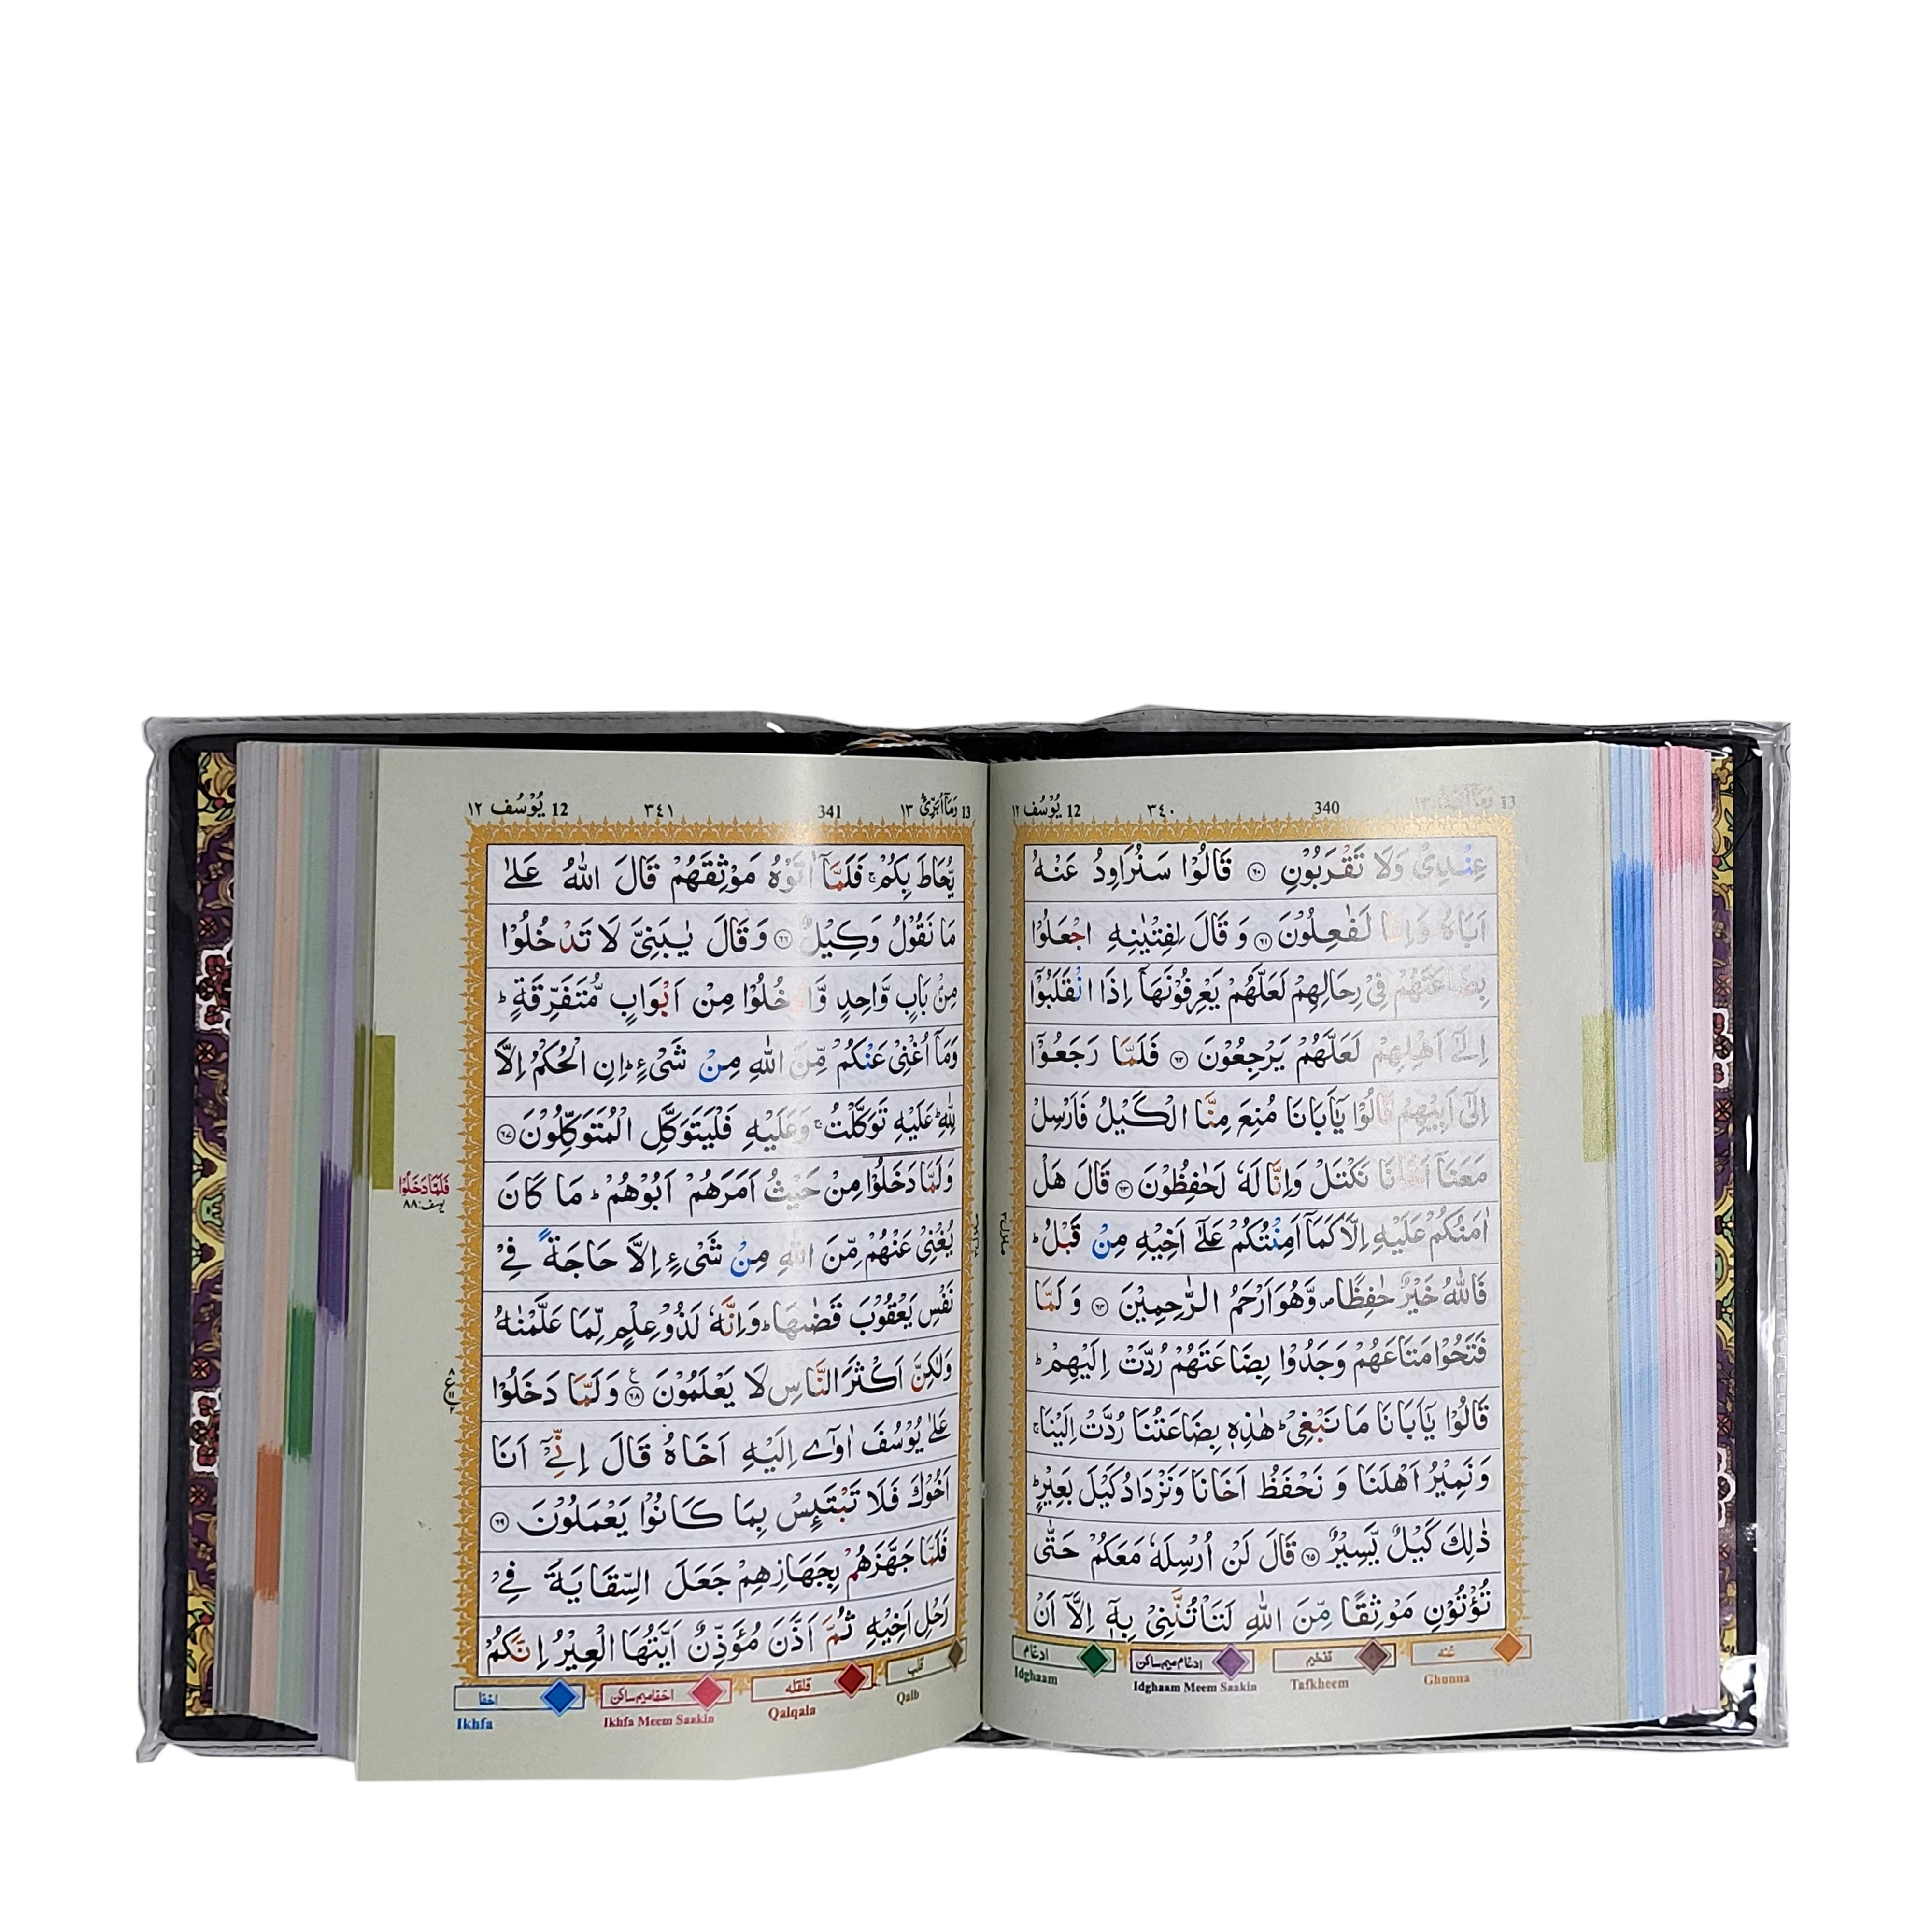 13 وَمَآاُبَرِّئُ ١٣ 340 ٣٤٠ 12 يُوْسُف ١٢
عِنْدِىْ وَلَا تَقْرَبُوْنِ ۶۰ قَالُوْا سَنُرَاوِدُ عَنْهُ
اَبَاهُ وَاِنَّا لَفٰعِلُوْنَ ۶۱ وَ قَالَ لِفِتْيٰنِهِ اجْعَلُوْا
بِضَاعَتَهُمْ فِىْ رِحَالِهِمْ لَعَلَّهُمْ يَعْرِفُوْنَهَاۤ اِذَا انْقَلَبُوْۤا
اِلٰٓى اَهْلِهِمْ لَعَلَّهُمْ يَرْجِعُوْنَ ۶۲ فَلَمَّا رَجَعُوْۤا
اِلٰٓى اَبِيْهِمْ قَالُوْا يٰۤاَبَانَا مُنِعَ مِنَّا الْكَيْلُ فَاَرْسِلْ
مَعَنَاۤ اَخَانَا نَكْتَلْ وَاِنَّا لَهٗ لَحٰفِظُوْنَ ۶۳ قَالَ هَلْ
اٰمَنُكُمْ عَلَيْهِ اِلَّا كَمَاۤ اَمِنْتُكُمْ عَلٰٓى اَخِيْهِ مِنْ قَبْلُ ؕ
فَاللّٰهُ خَيْرٌ حٰفِظًا ۪ وَّهُوَ اَرْحَمُ الرّٰحِمِيْنَ ۶۴ وَ لَمَّا
فَتَحُوْا مَتَاعَهُمْ وَجَدُوْا بِضَاعَتَهُمْ رُدَّتْ اِلَيْهِمْ ؕ
قَالُوْا يٰۤاَبَانَا مَا نَبْغِىْ ؕ هٰذِهٖ بِضَاعَتُنَا رُدَّتْ اِلَيْنَا ۚ
وَنَمِيْرُ اَهْلَنَا وَ نَحْفَظُ اَخَانَا وَنَزْدَادُ كَيْلَ بَعِيْرٍ ؕ
ذٰلِكَ كَيْلٌ يَّسِيْرٌ ۶۵ قَالَ لَنْ اُرْسِلَهٗ مَعَكُمْ حَتّٰى
تُؤْتُوْنِ مَوْثِقًا مِّنَ اللّٰهِ لَتَاْتُنَّنِىْ بِهٖۤ اِلَّاۤ اَنْ
غنه تفخيم ادغام ميم ساكن ادغام
Ghunna Tafkheem Idghaam Meem Saakin Idghaam
13 وَمَآاُبَرِّئُ ١٣ 341 ٣٤١ 12 يُوْسُف ١٢
يُّحَاطَ بِكُمْ ۚ فَلَمَّاۤ اٰتَوْهُ مَوْثِقَهُمْ قَالَ اللّٰهُ عَلٰى
مَا نَقُوْلُ وَكِيْلٌ ۶۶ وَ قَالَ يٰبَنِىَّ لَا تَدْخُلُوْا
مِنْۢ بَابٍ وَّاحِدٍ وَّادْخُلُوْا مِنْ اَبْوَابٍ مُّتَفَرِّقَةٍ ؕ
وَمَاۤ اُغْنِىْ عَنْكُمْ مِّنَ اللّٰهِ مِنْ شَىْءٍ ؕ اِنِ الْحُكْمُ اِلَّا
لِلّٰهِ ؕ عَلَيْهِ تَوَكَّلْتُ ۚ وَعَلَيْهِ فَلْيَتَوَكَّلِ الْمُتَوَكِّلُوْنَ ۶۷
وَلَمَّا دَخَلُوْا مِنْ حَيْثُ اَمَرَهُمْ اَبُوْهُمْ ؕ مَا كَانَ
يُغْنِىْ عَنْهُمْ مِّنَ اللّٰهِ مِنْ شَىْءٍ اِلَّا حَاجَةً فِىْ
نَفْسِ يَعْقُوْبَ قَضٰىهَا ؕ وَاِنَّهٗ لَذُوْ عِلْمٍ لِّمَا عَلَّمْنٰهُ
وَلٰكِنَّ اَكْثَرَ النَّاسِ لَا يَعْلَمُوْنَ ۶۸ ع وَلَمَّا دَخَلُوْا
عَلٰى يُوْسُفَ اٰوٰٓى اِلَيْهِ اَخَاهُ قَالَ اِنِّىْۤ اَنَا
اَخُوْكَ فَلَا تَبْتَئِسْ بِمَا كَانُوْا يَعْمَلُوْنَ ۶۹
فَلَمَّا جَهَّزَهُمْ بِجَهَازِهِمْ جَعَلَ السِّقَايَةَ فِىْ
رَحْلِ اَخِيْهِ ثُمَّ اَذَّنَ مُؤَذِّنٌ اَيَّتُهَا الْعِيْرُ اِنَّكُمْ
قلب قلقله اخفا ميم ساكن اخفا
Qalb Qalqala Ikhfa Meem Saakin Ikhfa
فَلَمَّا دَخَلُوْا
يوسف: ٨٨